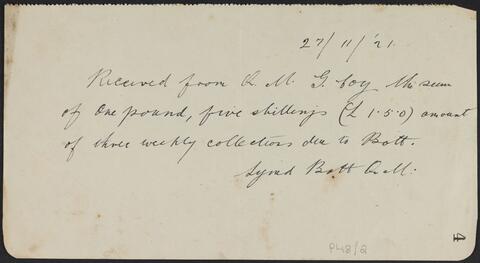 27/11/'21.
Received from Q. M. G. Coy the sum
of one pound, five shillings (£1.5.0) amount
of three weekly collections due to Batt.
Synd Batt Q.M.
P48/2
4